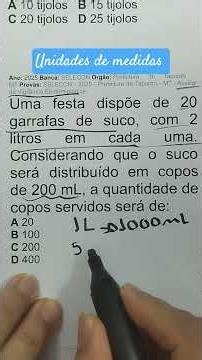 A 10 tijolos B 15 tijolos
C 20 tijolos D 25 tijolos
Unidades de medidas
Ano: 2025 Banca: SELECON Órgão: Prefeitura
MT Provas: SELECON - 2025 - Prefeitura de Tapurah - MT -
Uma festa dispõe de 20
garrafas de suco, com 2
litros em cada uma.
Considerando que o suco
será distribuído em copos
de 200 mL, a quantidade de
copos servidos será de:
A 20
1L 1000mL
B 100
5
C 200
D 400